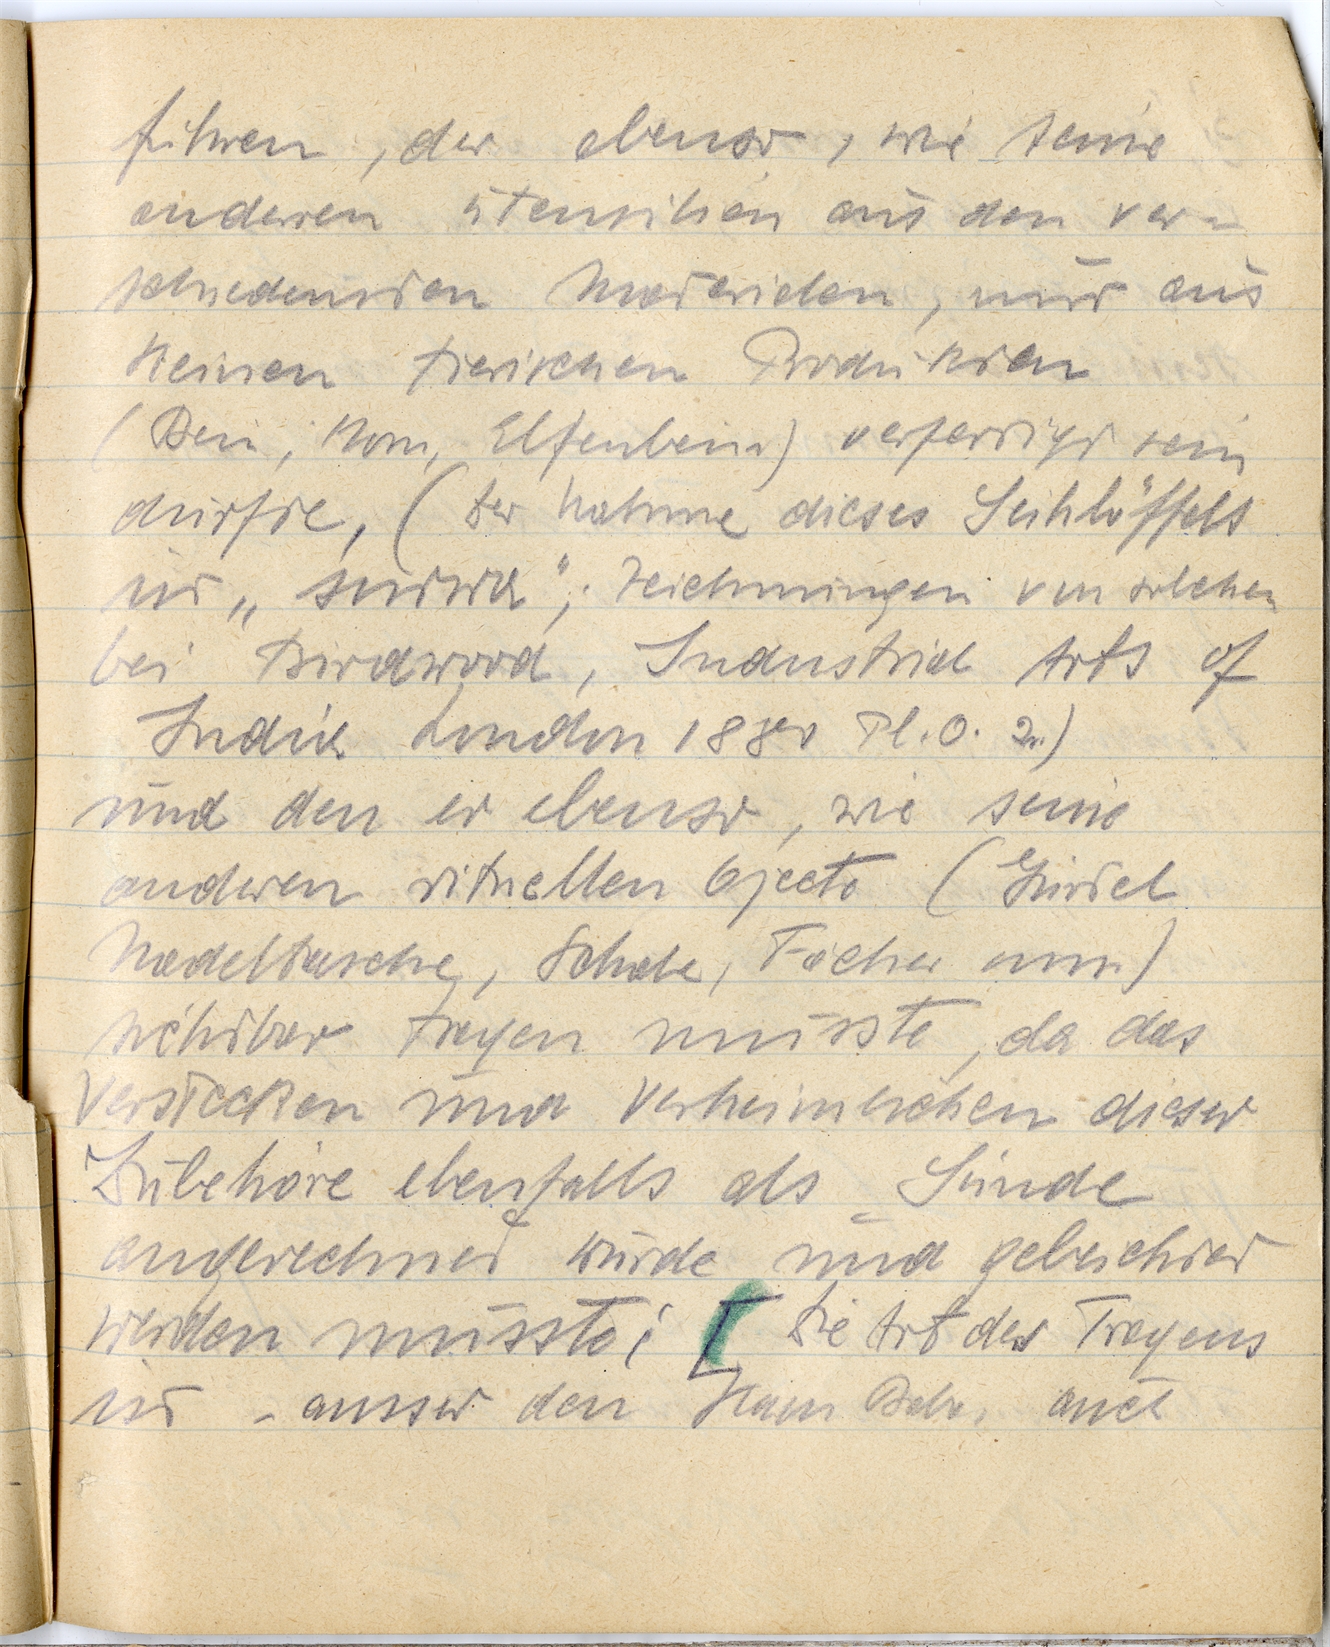 führen, der ebenso, wie seine
anderen Utensilien aus den ver-
schiedensten Materialen, nur aus
keinen tierischen Produkten
(Bein, Horn, Elfenbein) verfertigt sein
durfte, (der Nahme dieses Seihlöffels
ist „sruwa"; Zeichnungen von solchen
bei Birdwood, Industrial Arts of
India London 1880 Pl. O. 2.)
und den er ebenso, wie seine
anderen rituellen Objecte (Gürtel
Nadeltasche, Schale, Fächer usw.)
sichtbar tragen musste, da das
Verstecken und Verheimlichen dieser
Zubehöre ebenfalls als Sünde
angerechnet wurde und gebeichtet
werden musste; [ Die Art des Tragens
ist - ausser den auch